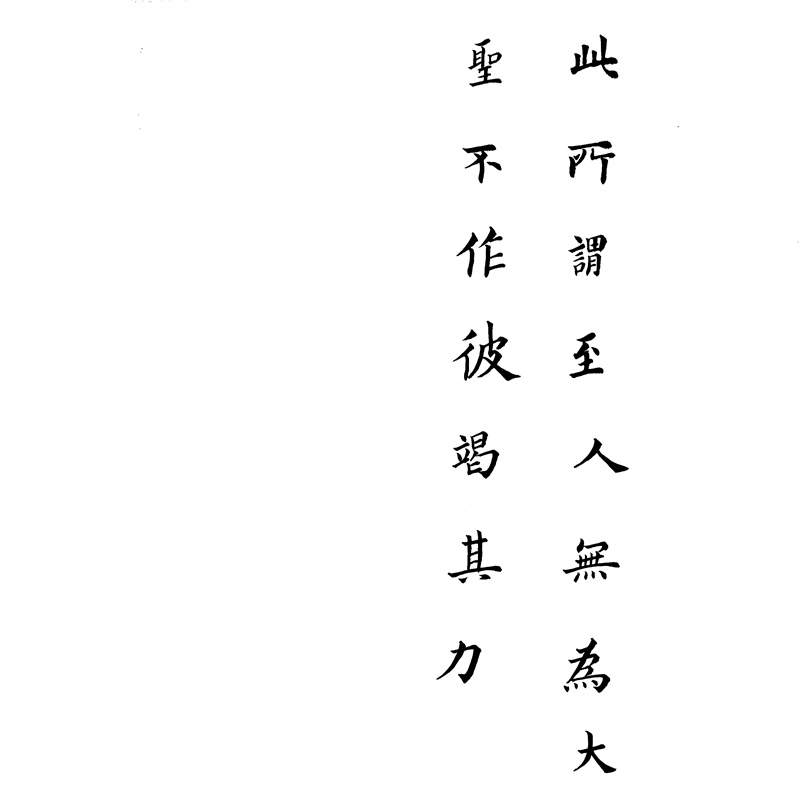 此所謂至人無為大
聖不作彼竭其力